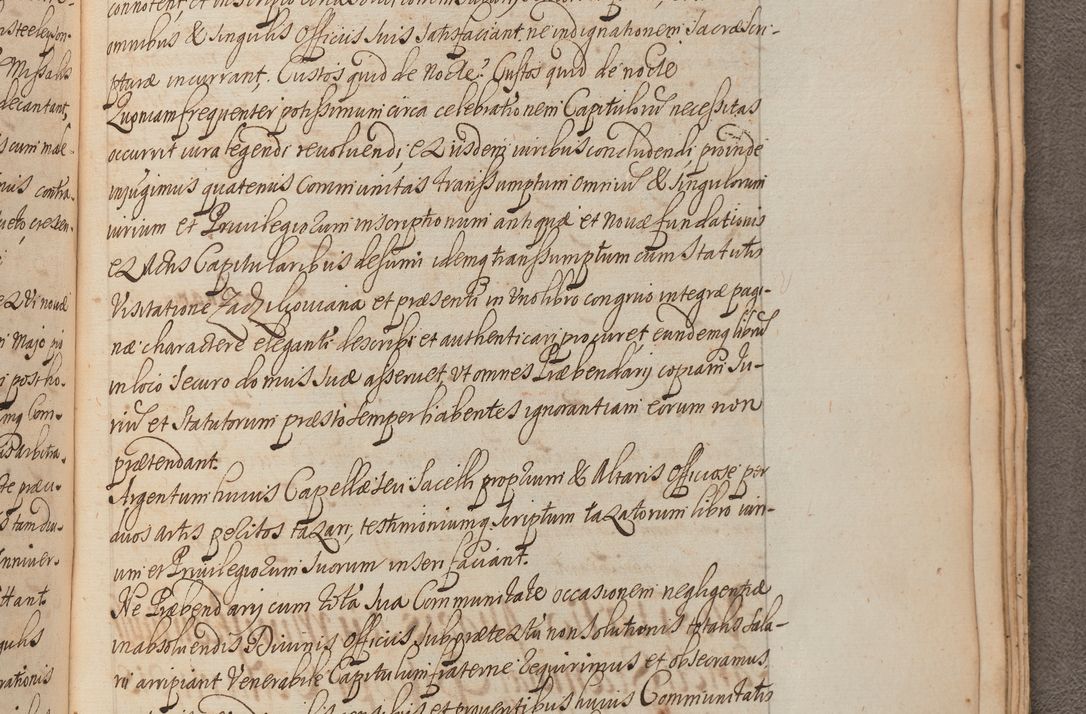 omnibus & singulis Officijs suis satisfaciant, ne indignationem sacræ scri-
pturæ incurrant, Custos quid de nocte? Custos quid de nocte
Quoniam frequenter potissimum circa celebrationem Capitulorũ necessitas
occurrit iura legendi revoluendi, ex ijsdem iuribus concludendi, proinde
iniugimus quatenus Communitas transsumptum omniũ & singulorum
iurium et Priuilegiorum inscriptionum antiquæ et nouæ fundationis
ex Actis Capitularibus desumi idemq transsumptum cum Statutis
Visitatione Zadzikowiana et præsenti in vno libro congruo integræ pagi-
næ charactere eleganti describi et authenticari procuret eundemq librũ
in loco securo domus suæ asseruet, vt omnes Præbendarij copiam Iu-
riũ et Statutorum præsto semper habentes ignorantiam eorum non
prætendant.
Argentum huius Capellæ seu Sacelli proprium & Altaris Officiosè per
duos artis peritos taxari, testimoniumq scriptum taxatorum libro iuri-
um et Priuilegiorum suorum inseri faciant.
Ne Præbendarij cum tota sua Communitate occasionem negligentiæ
in absoluendis Diuinis Officijs, sub prætextu non solutionis totalis sala-
rij arripiant Venerabile Capitulum fraterne requirimus et obsecramus
et prouentibus huius Communitatis
Missalis
decantant,
contra-